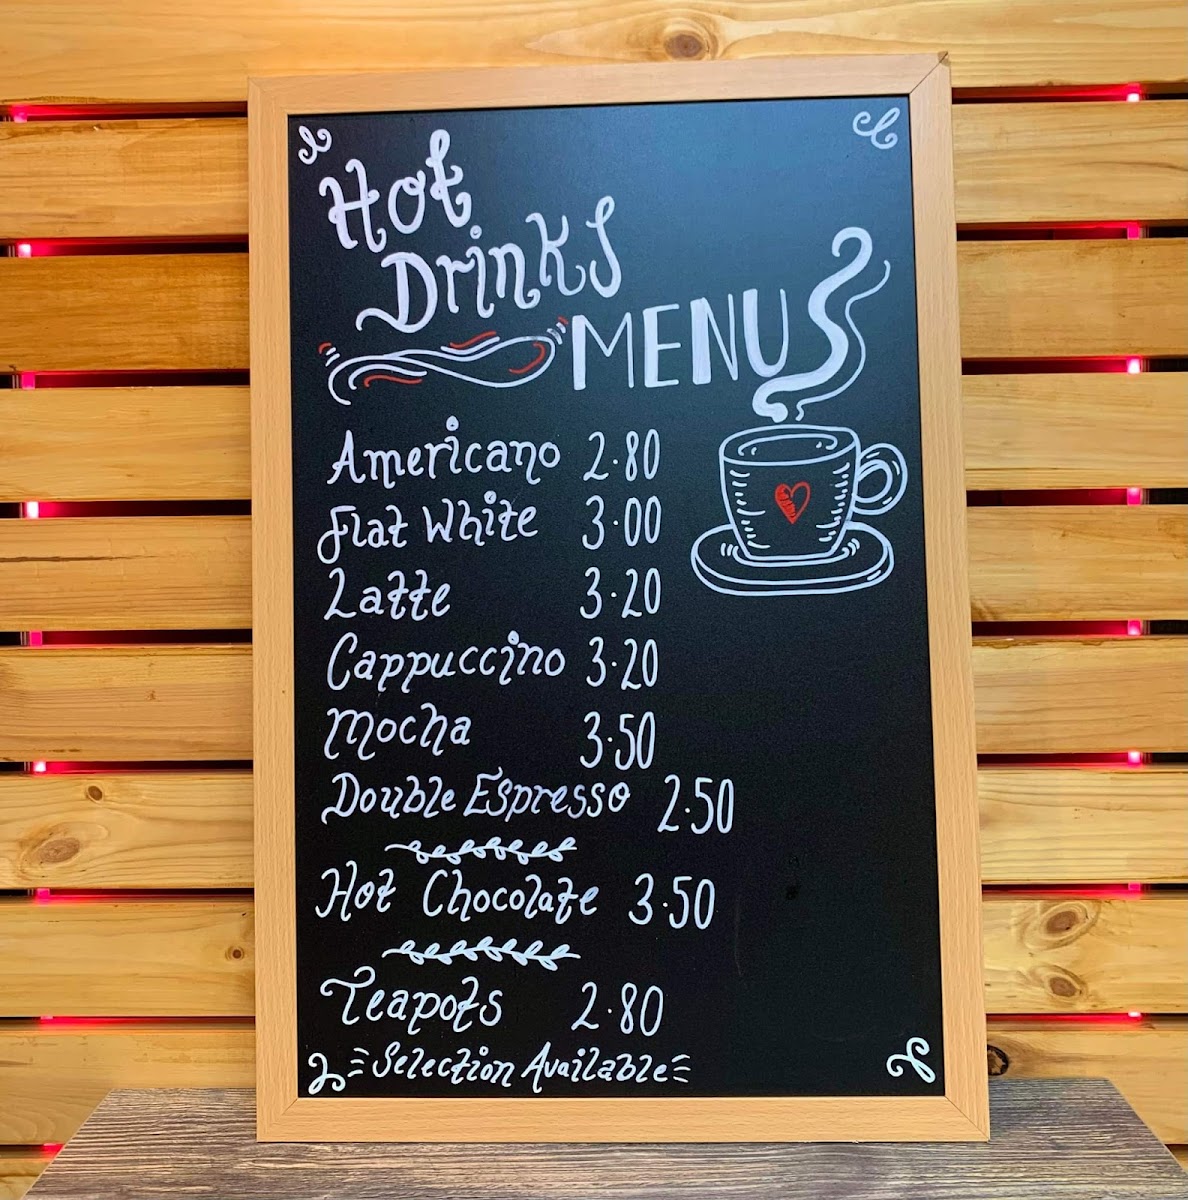 Hot
Drinks
MENU
Americano 2.80
Flat White 3.00
Latte 3.20
Cappuccino 3.20
Mocha 3.50
Double Espresso 2.50
Hot Chocolate 3.50
Teapots 2.80
Selection Available